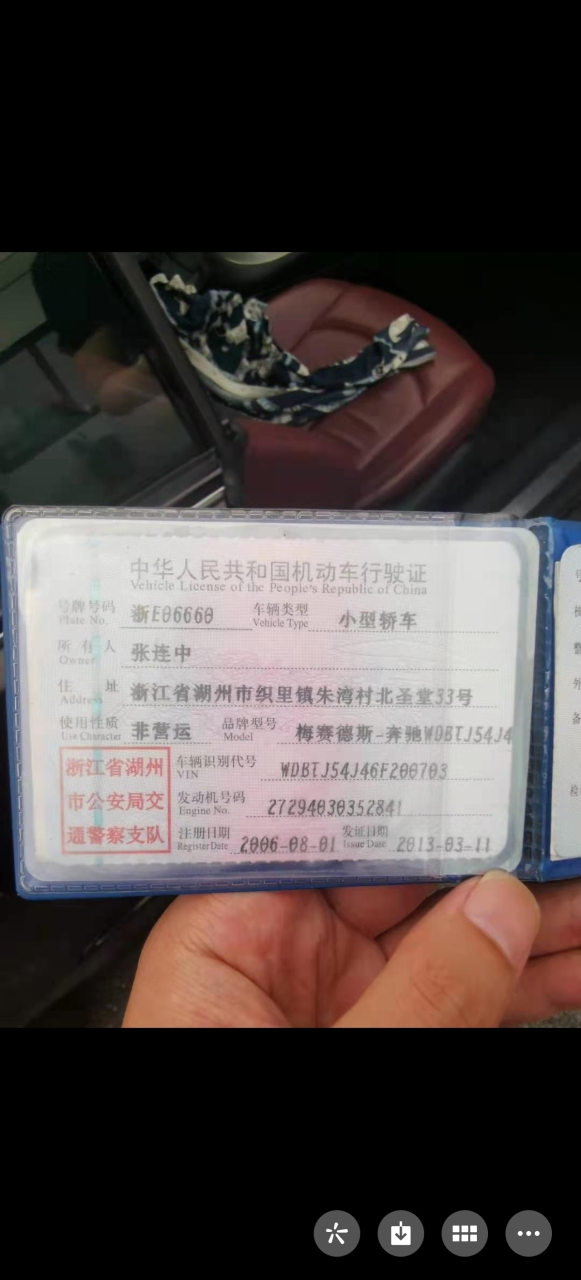 中华人民共和国机动车行驶证
Vehicle License of the People's Republic of China
号牌号码 浙E06660 车辆类型 小型轿车
Plate No. Vehicle Type
所有人 张连中
Owner
住址 浙江省湖州市织里镇朱湾村北圣堂33号
Address
使用性质 非营运 品牌型号 梅赛德斯-奔驰WDBTJ54J4
Use Character Model
浙江省湖州
市公安局交
通警察支队
车辆识别代号 WDBTJ54J46F200703
VIN
发动机号码 27294030352841
Engine No.
注册日期 2006-08-01 发证日期 2013-03-11
Register Date Issue Date